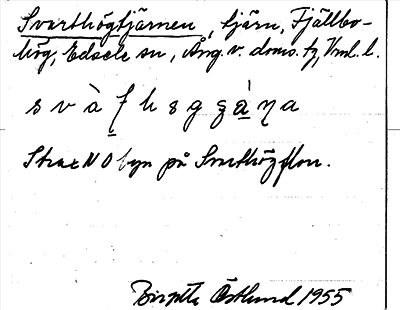 Svarthögtjärnen, tjärn, Fjällbo-
hög, Edsele sn, Ång. v. doms. tz, Vnl. l.
s v à f h s g
Strax NO byn på Svarthögflon.
Birgitta Östlund 1955